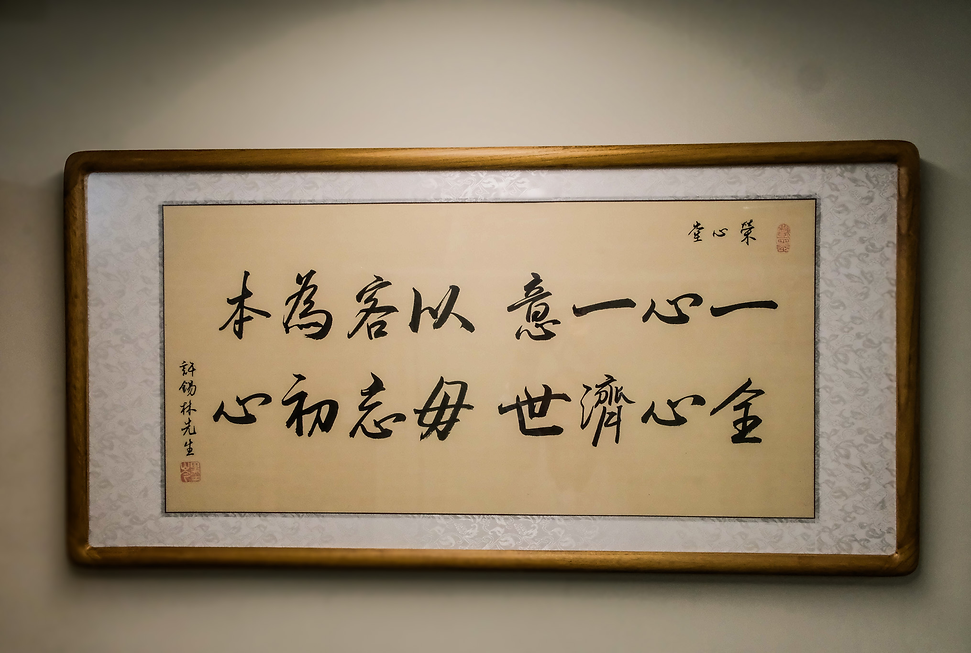 榮心堂
一心一意 以客為本
全心濟世 毋忘初心
許錫林先生